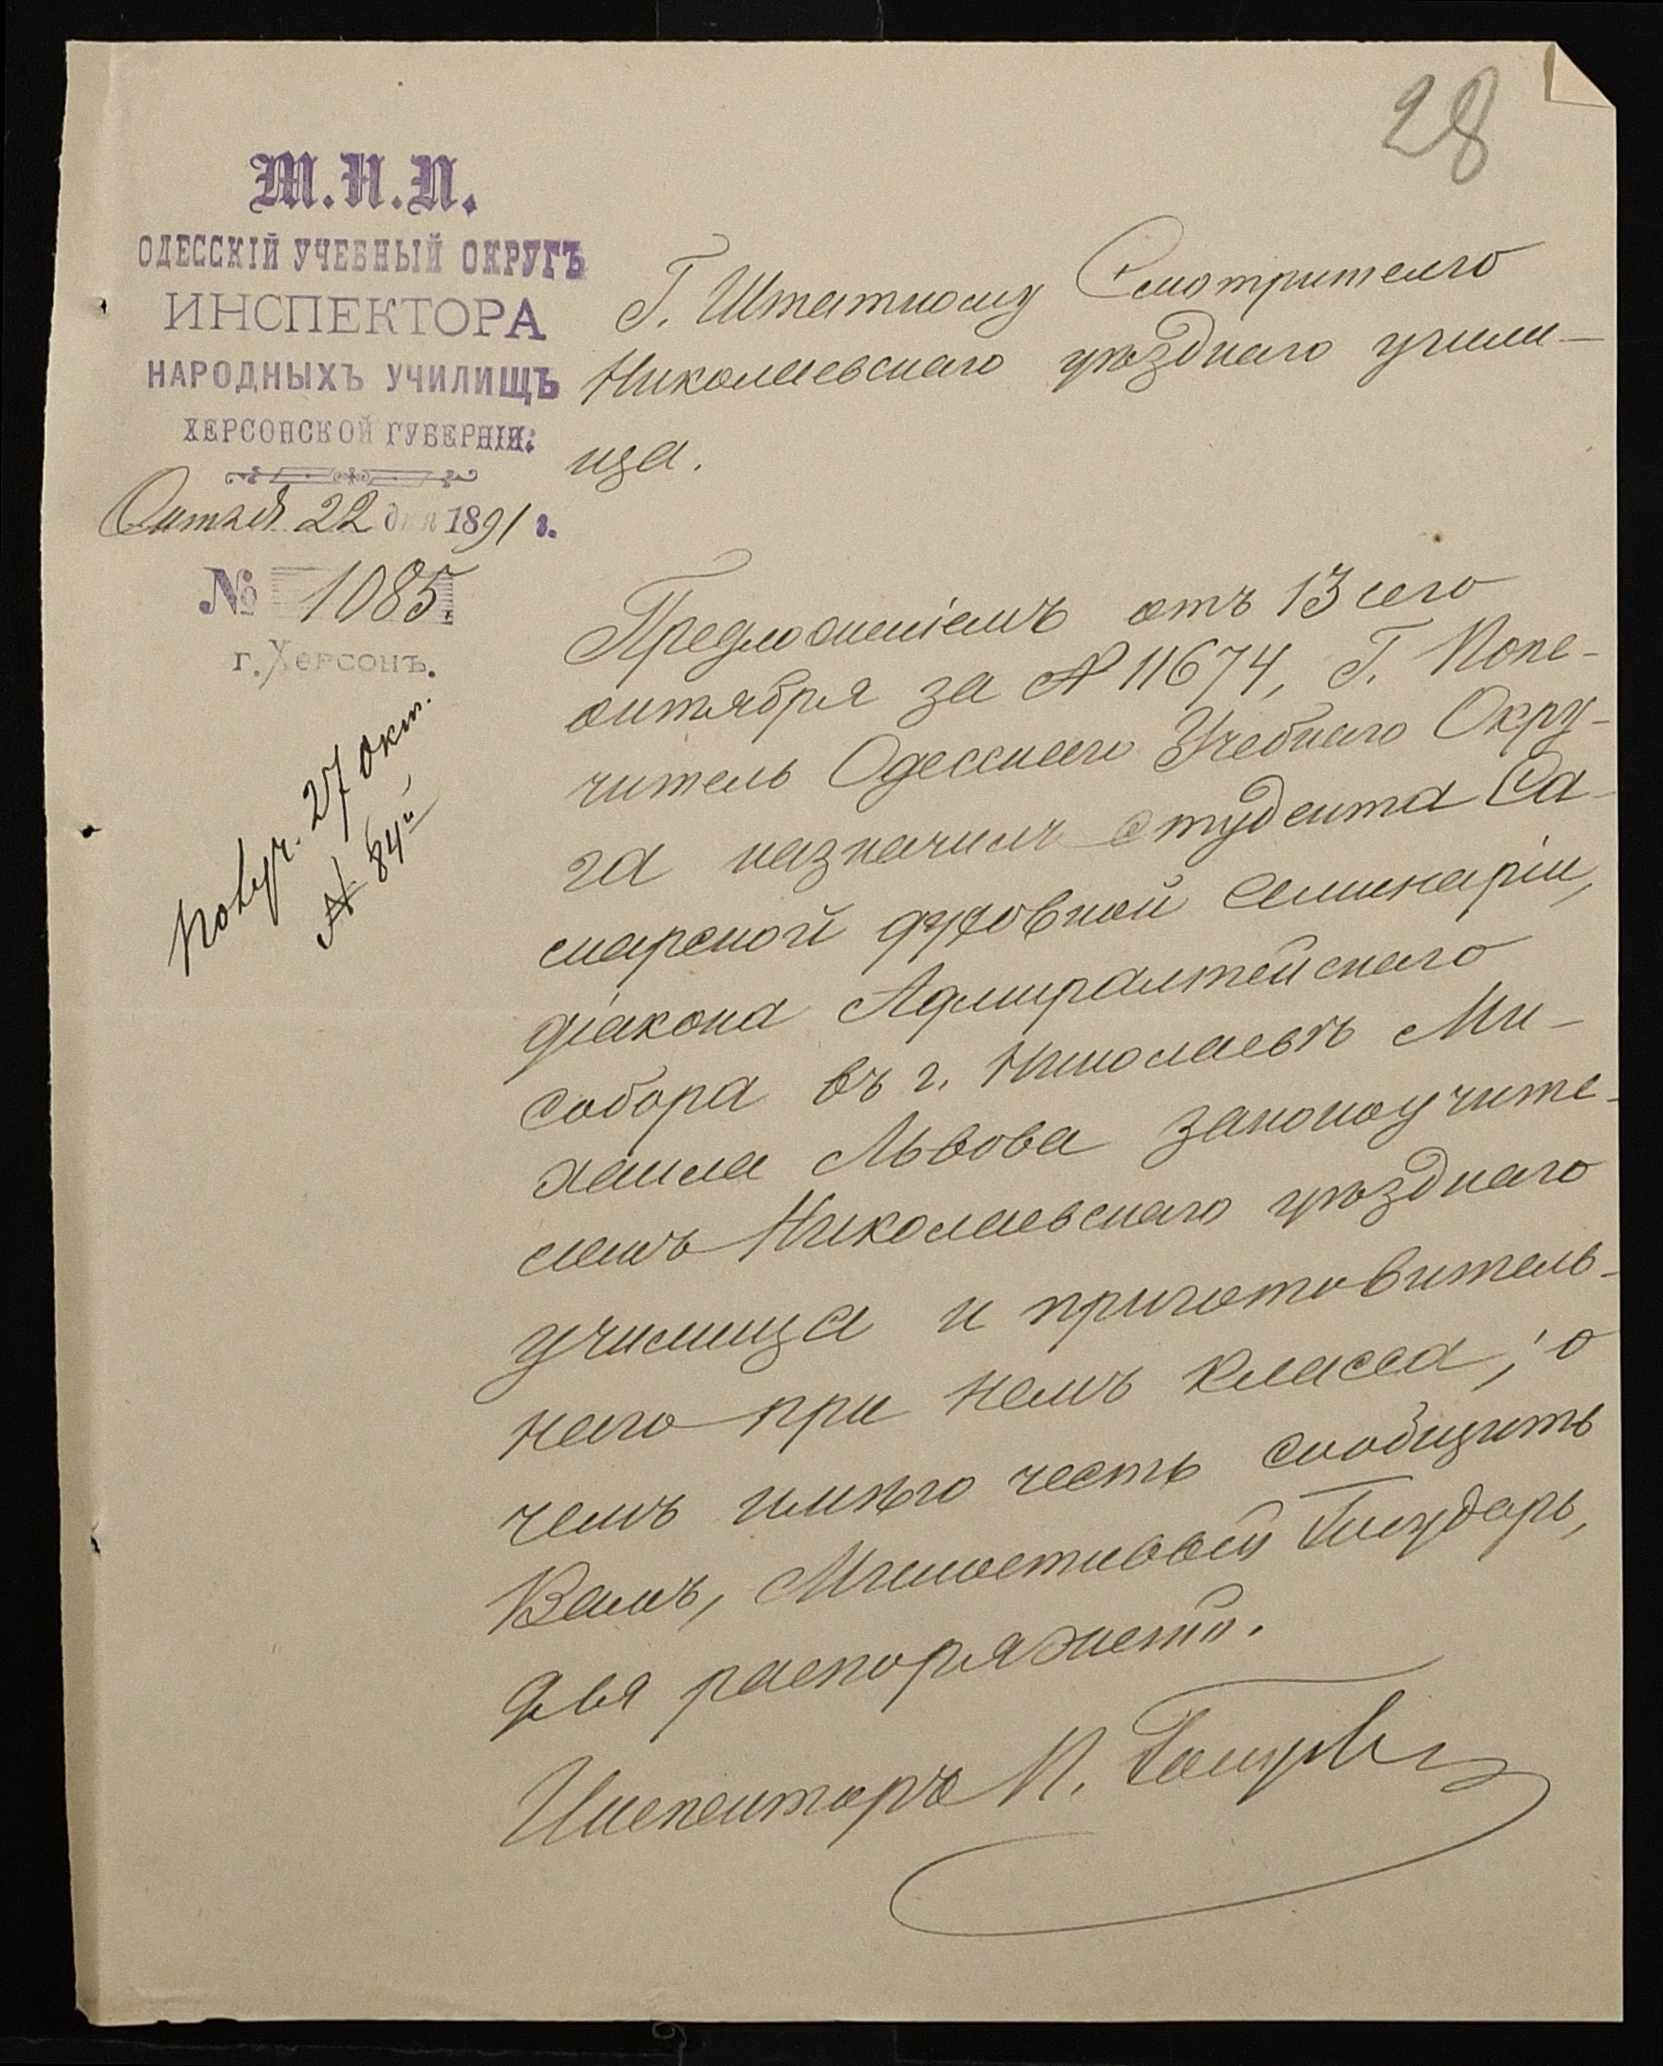 28
М.Н.П.
ОДЕССКІЙ УЧЕБНЫЙ ОКРУГЪ
ИНСПЕКТОРА
НАРОДНЫХЪ УЧИЛИЩЪ
ХЕРСОНСКОЙ ГУБЕРНІИ.
Октяб. 22 дня 1891 г.
№ 1085.
г. Херсонъ.
Получ. 27 окт.
№ 84й
Г. Штатному Смотрителю
Николаевскаго уѣзднаго учили-
ща.
Предложеніемъ отъ 13 сего
октября за № 11674, Г. Попе-
читель Одесскаго Учебнаго Окру-
га назначилъ студента Са-
марской духовной семинаріи,
діакона Адмиралтейскаго
собора въ г. Николаевѣ Ми-
хаила Львова законоучите-
лемъ Николаевскаго уѣзднаго
училища и приготовитель-
наго при немъ класса; о
чемъ имѣю честь сообщить
Вамъ, Милостивый Государь,
для распоряженія.
Инспекторъ П.